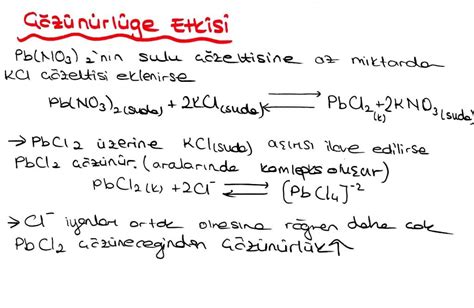 Çözünürlüğe Etkisi
Pb(NO3)2'nın sulu çözeltisine az miktarda
KCl çözeltisi eklenirse
Pb(NO3)2(suda) + 2KCl(suda) ⇌ PbCl2(k) + 2KNO3(suda)
→ PbCl2 üzerine KCl(suda) aşırısı ilave edilirse
PbCl2 çözünür. (aralarında komleks oluşur)
PbCl2(k) + 2Cl⁻ ⇌ [PbCl4]⁻²
→ Cl⁻ iyonları ortak olmasına rağmen daha çok
PbCl2 çözüneceğinden çözünürlük ↑